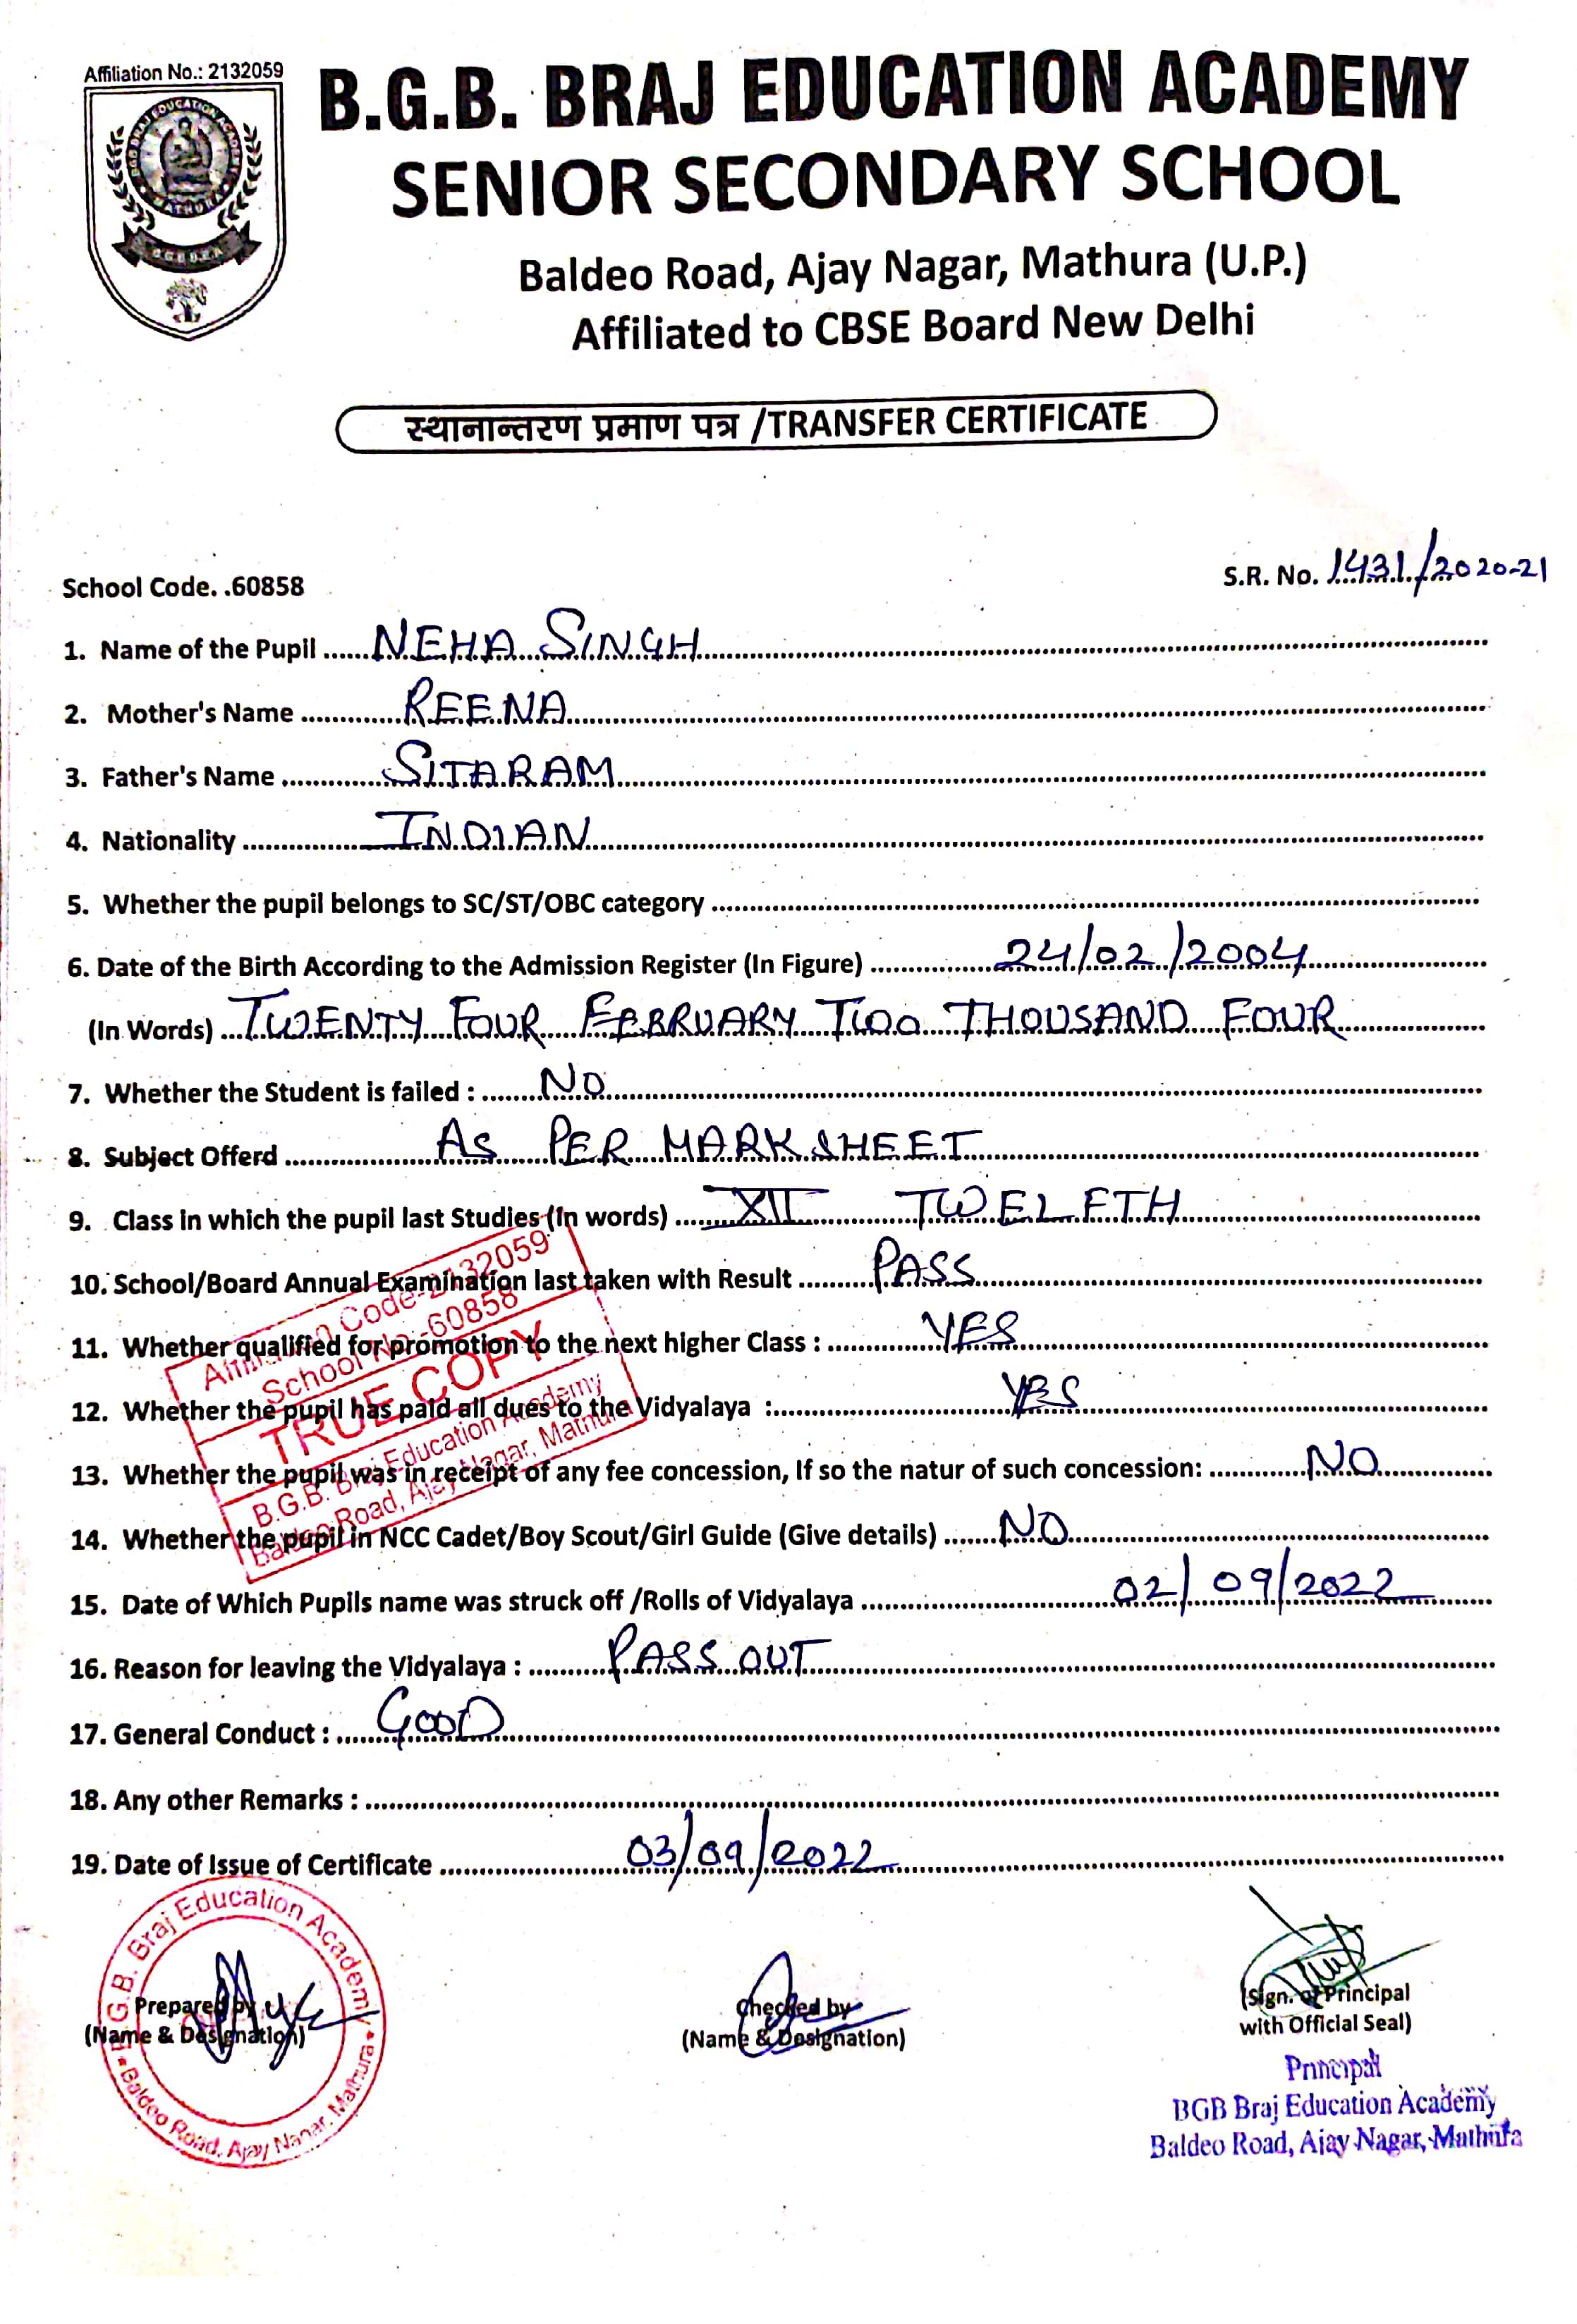 Affiliation No.: 2132059
B.G.B. BRAJ EDUCATION ACADEMY
SENIOR SECONDARY SCHOOL
Baldeo Road, Ajay Nagar, Mathura (U.P.)
Affiliated to CBSE Board New Delhi
स्थानान्तरण प्रमाण पत्र /TRANSFER CERTIFICATE
School Code. .60858
S.R. No. 1431/2020-21
1. Name of the Pupil ...... NEHA SINGH
2. Mother's Name ............ REENA
3. Father's Name ............ SITARAM
4. Nationality ............... INDIAN
5. Whether the pupil belongs to SC/ST/OBC category ............
6. Date of the Birth According to the Admission Register (In Figure) ............ 24/02/2004
(In Words) .. TWENTY FOUR FEBRUARY TWO THOUSAND FOUR
7. Whether the Student is failed : ....... NO
8. Subject Offerd ............ AS PER MARKSHEET
9. Class in which the pupil last Studies (In words) ...... XII TWELFTH
10. School/Board Annual Examination last taken with Result ......... PASS
11. Whether qualified for promotion to the next higher Class : ............ YES
12. Whether the pupil has paid all dues to the Vidyalaya : ............ YES
13. Whether the pupil was in receipt of any fee concession, If so the natur of such concession: ............ NO
14. Whether the pupil in NCC Cadet/Boy Scout/Girl Guide (Give details) ...... NO
15. Date of Which Pupils name was struck off /Rolls of Vidyalaya ............ 02/09/2022
16. Reason for leaving the Vidyalaya : .......... PASS OUT
17. General Conduct : ...... GOOD
18. Any other Remarks : ............
19. Date of Issue of Certificate ............ 03/09/2022
Code-2132059
School No.-60858
TRUE COPY
B.G.B. Braj Education Academy
Baldeo Road, Ajay Nagar, Mathura
B.G.B. Braj Education Academy
Baldeo Road, Ajay Nagar, Mathura
Prepared by
(Name & Designation)
Checked by
(Name & Designation)
(Sign. of Principal
with Official Seal)
Principal
BGB Braj Education Academy
Baldeo Road, Ajay Nagar, Mathura